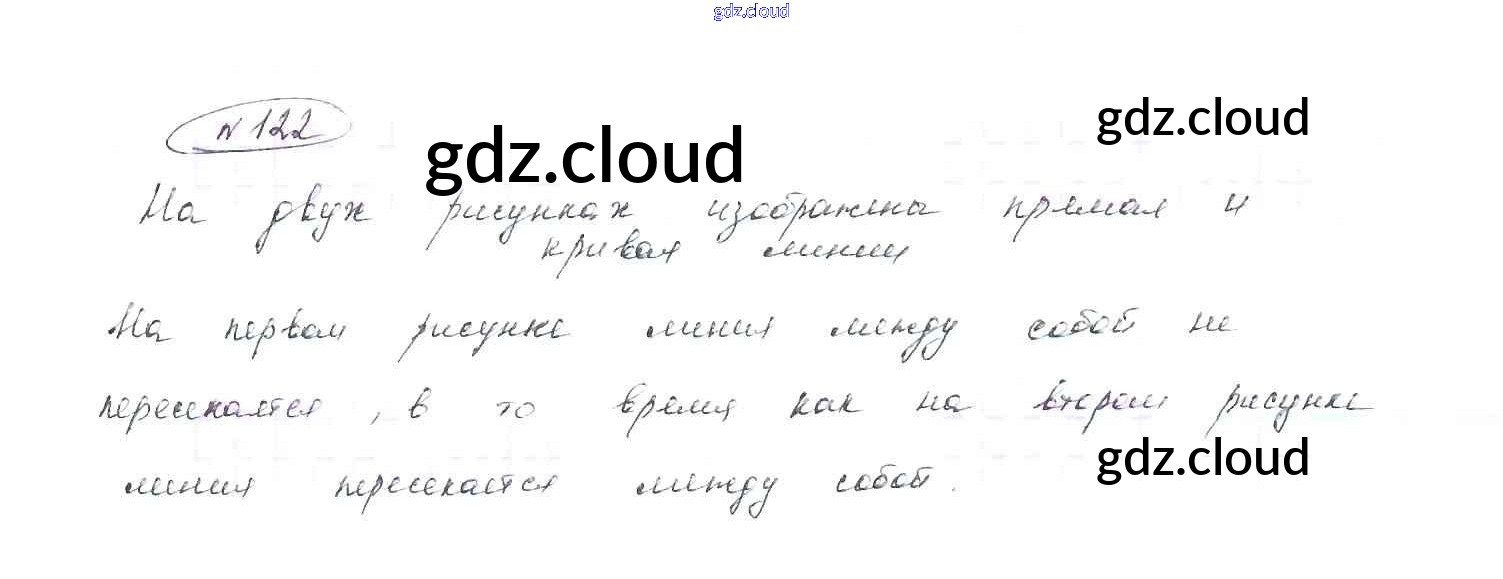 gdz.cloud
№ 122
gdz.cloud
gdz.cloud
На двух рисунках изображены прямая и
кривая линии
На первом рисунке линия между собой не
пересекается, в то время как на втором рисунке
gdz.cloud
линия пересекается между собой.